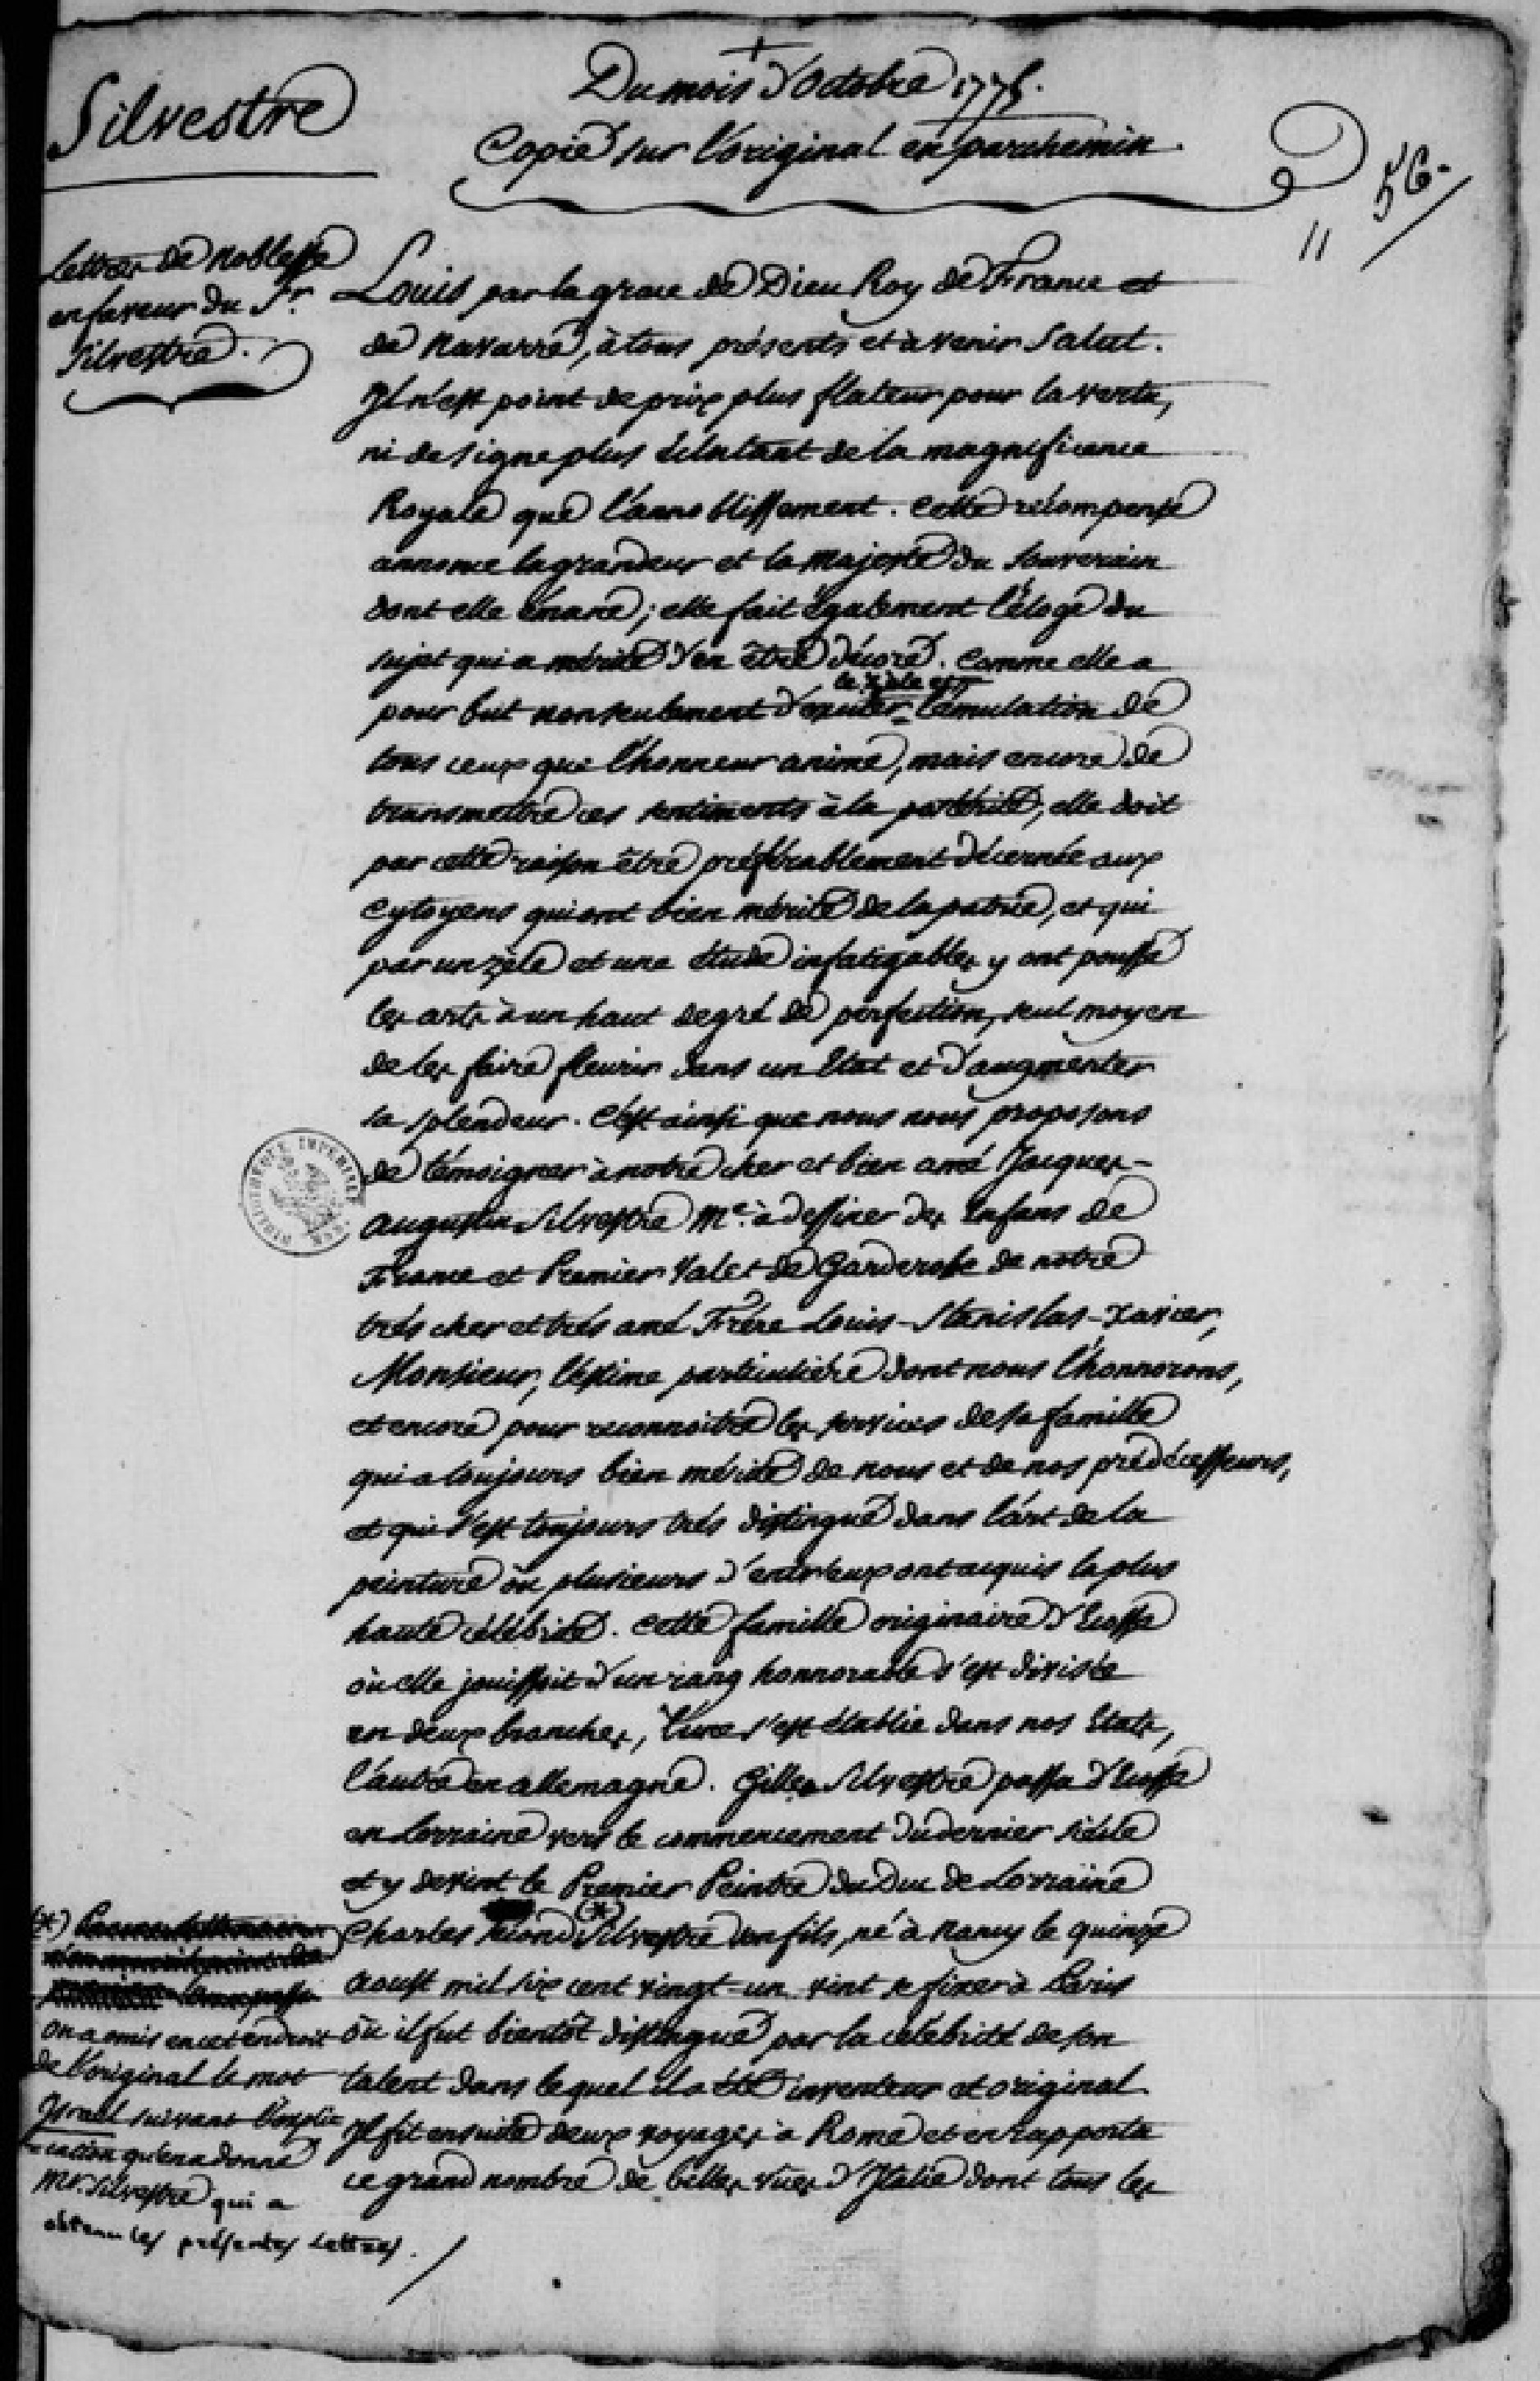 Silvestre
Du mois d'Octobre 1775.
Copié sur l'original en parchemin.
56.
11
Lettres de Noblesse
en faveur du Sr.
Silvestre.
Louis par la grace de Dieu Roy de France et
de Navarre, à tous présents et à venir Salut.
Il n'est point de prix plus flateur pour la vertu,
ni de signe plus éclatant de la magnificence
Royale que l'annoblissement. Cette récompense
annonce la grandeur et la Majesté du Souverain
dont elle émane; elle fait également l'éloge du
sujet qui a mérité d'en être décoré. Comme elle a
le zèle et
pour but non seulement d'exciter l'émulation de
tous ceux que l'honneur anime, mais encore de
transmettre ces sentiments à la postérité, elle doit
par cette raison être préférablement décernée aux
Cytoyens qui ont bien mérité de la patrie, et qui
par un zèle et une étude infatigables y ont poussé
les arts à un haut degré de perfection, seul moyen
de les faire fleurir dans un Etat et d'augmenter
sa splendeur. C'est ainsi que nous nous proposons
de témoigner à notre cher et bien amé Jacques-
Augustin Silvestre Me. à dessiner des Enfans de
France et Premier Valet de Garderobe de notre
très cher et très amé Frère Louis-Stanislas-Xavier,
Monsieur, l'estime particulière dont nous l'honnorons,
et encore pour reconnoitre les services de sa famille
qui a toujours bien mérité de nous et de nos prédécesseurs,
et qui s'est toujours très distingué dans l'art de la
peinture où plusieurs d'entr'eux ont acquis la plus
haute célébrité. Cette famille originaire d'Ecosse
où elle jouissoit d'un rang honnorable s'est divisée
en deux branches, l'une s'est établie dans nos Etats,
l'autre en allemagne. Gilles Silvestre passa d'Ecosse
en Lorraine vers le commencement du dernier siécle
et y devint le Premier Peintre du Duc de Lorraine
Charles (*) Silvestre son fils, né à Nancy le quinze
aoust mil six cent vingt-un vint se fixer à Paris
où il fut bientôt distingué par la célébrité de son
talent dans lequel il a été inventeur et original.
Il fit ensuite deux voyages à Rome et en rapporta
ce grand nombre de belles vües d'Italie dont tous les
(*)
on a omis en cet endroit
de l'original le mot
Israel suivant l'expli
cation qu'en a donné
Mr. Silvestre qui a
obtenu les présentes Lettres.